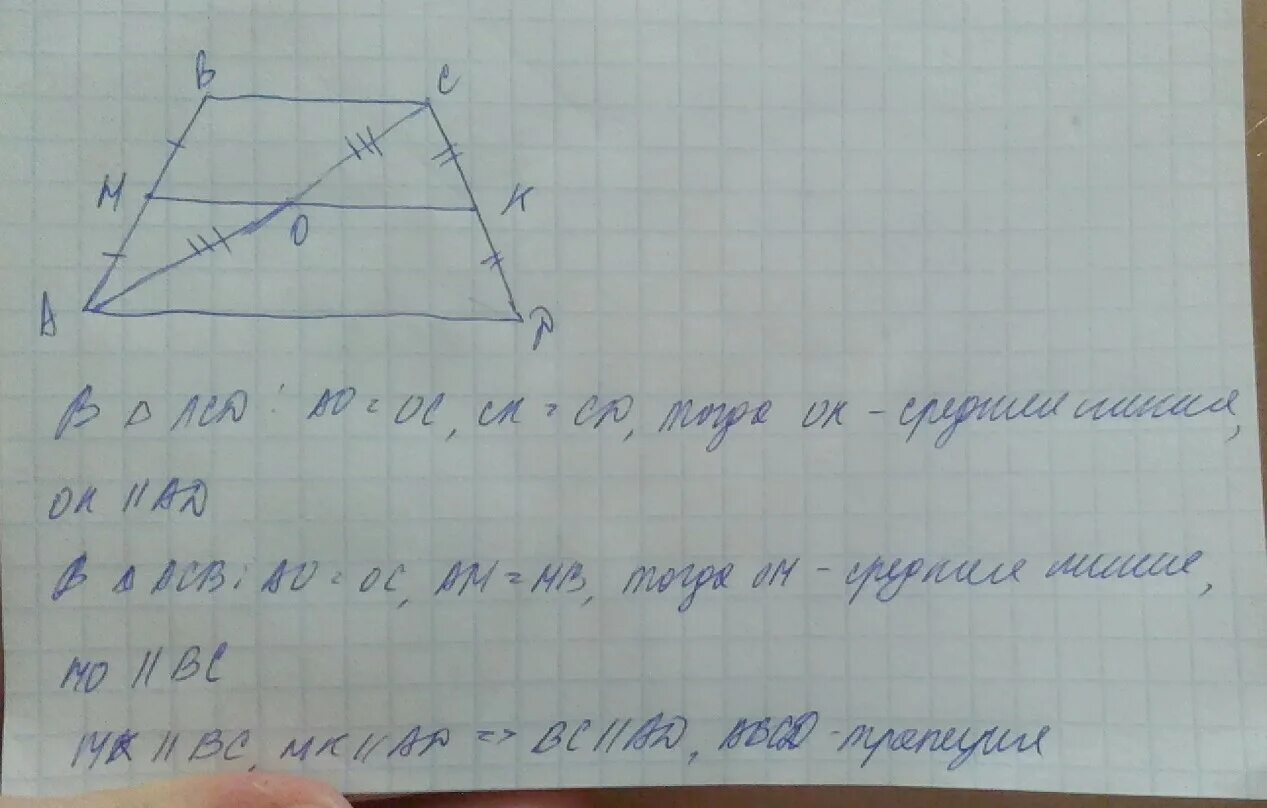 B
C
M
K
O
A
D
В △ ACD : AO = OC, CK = CD, тогда OK - средняя линия,
OK || AD
В △ ACB : AO = OC, AM = MB, тогда OM - средняя линия,
MO || BC
MK || BC, MK || AD => BC || AD, ABCD - трапеция